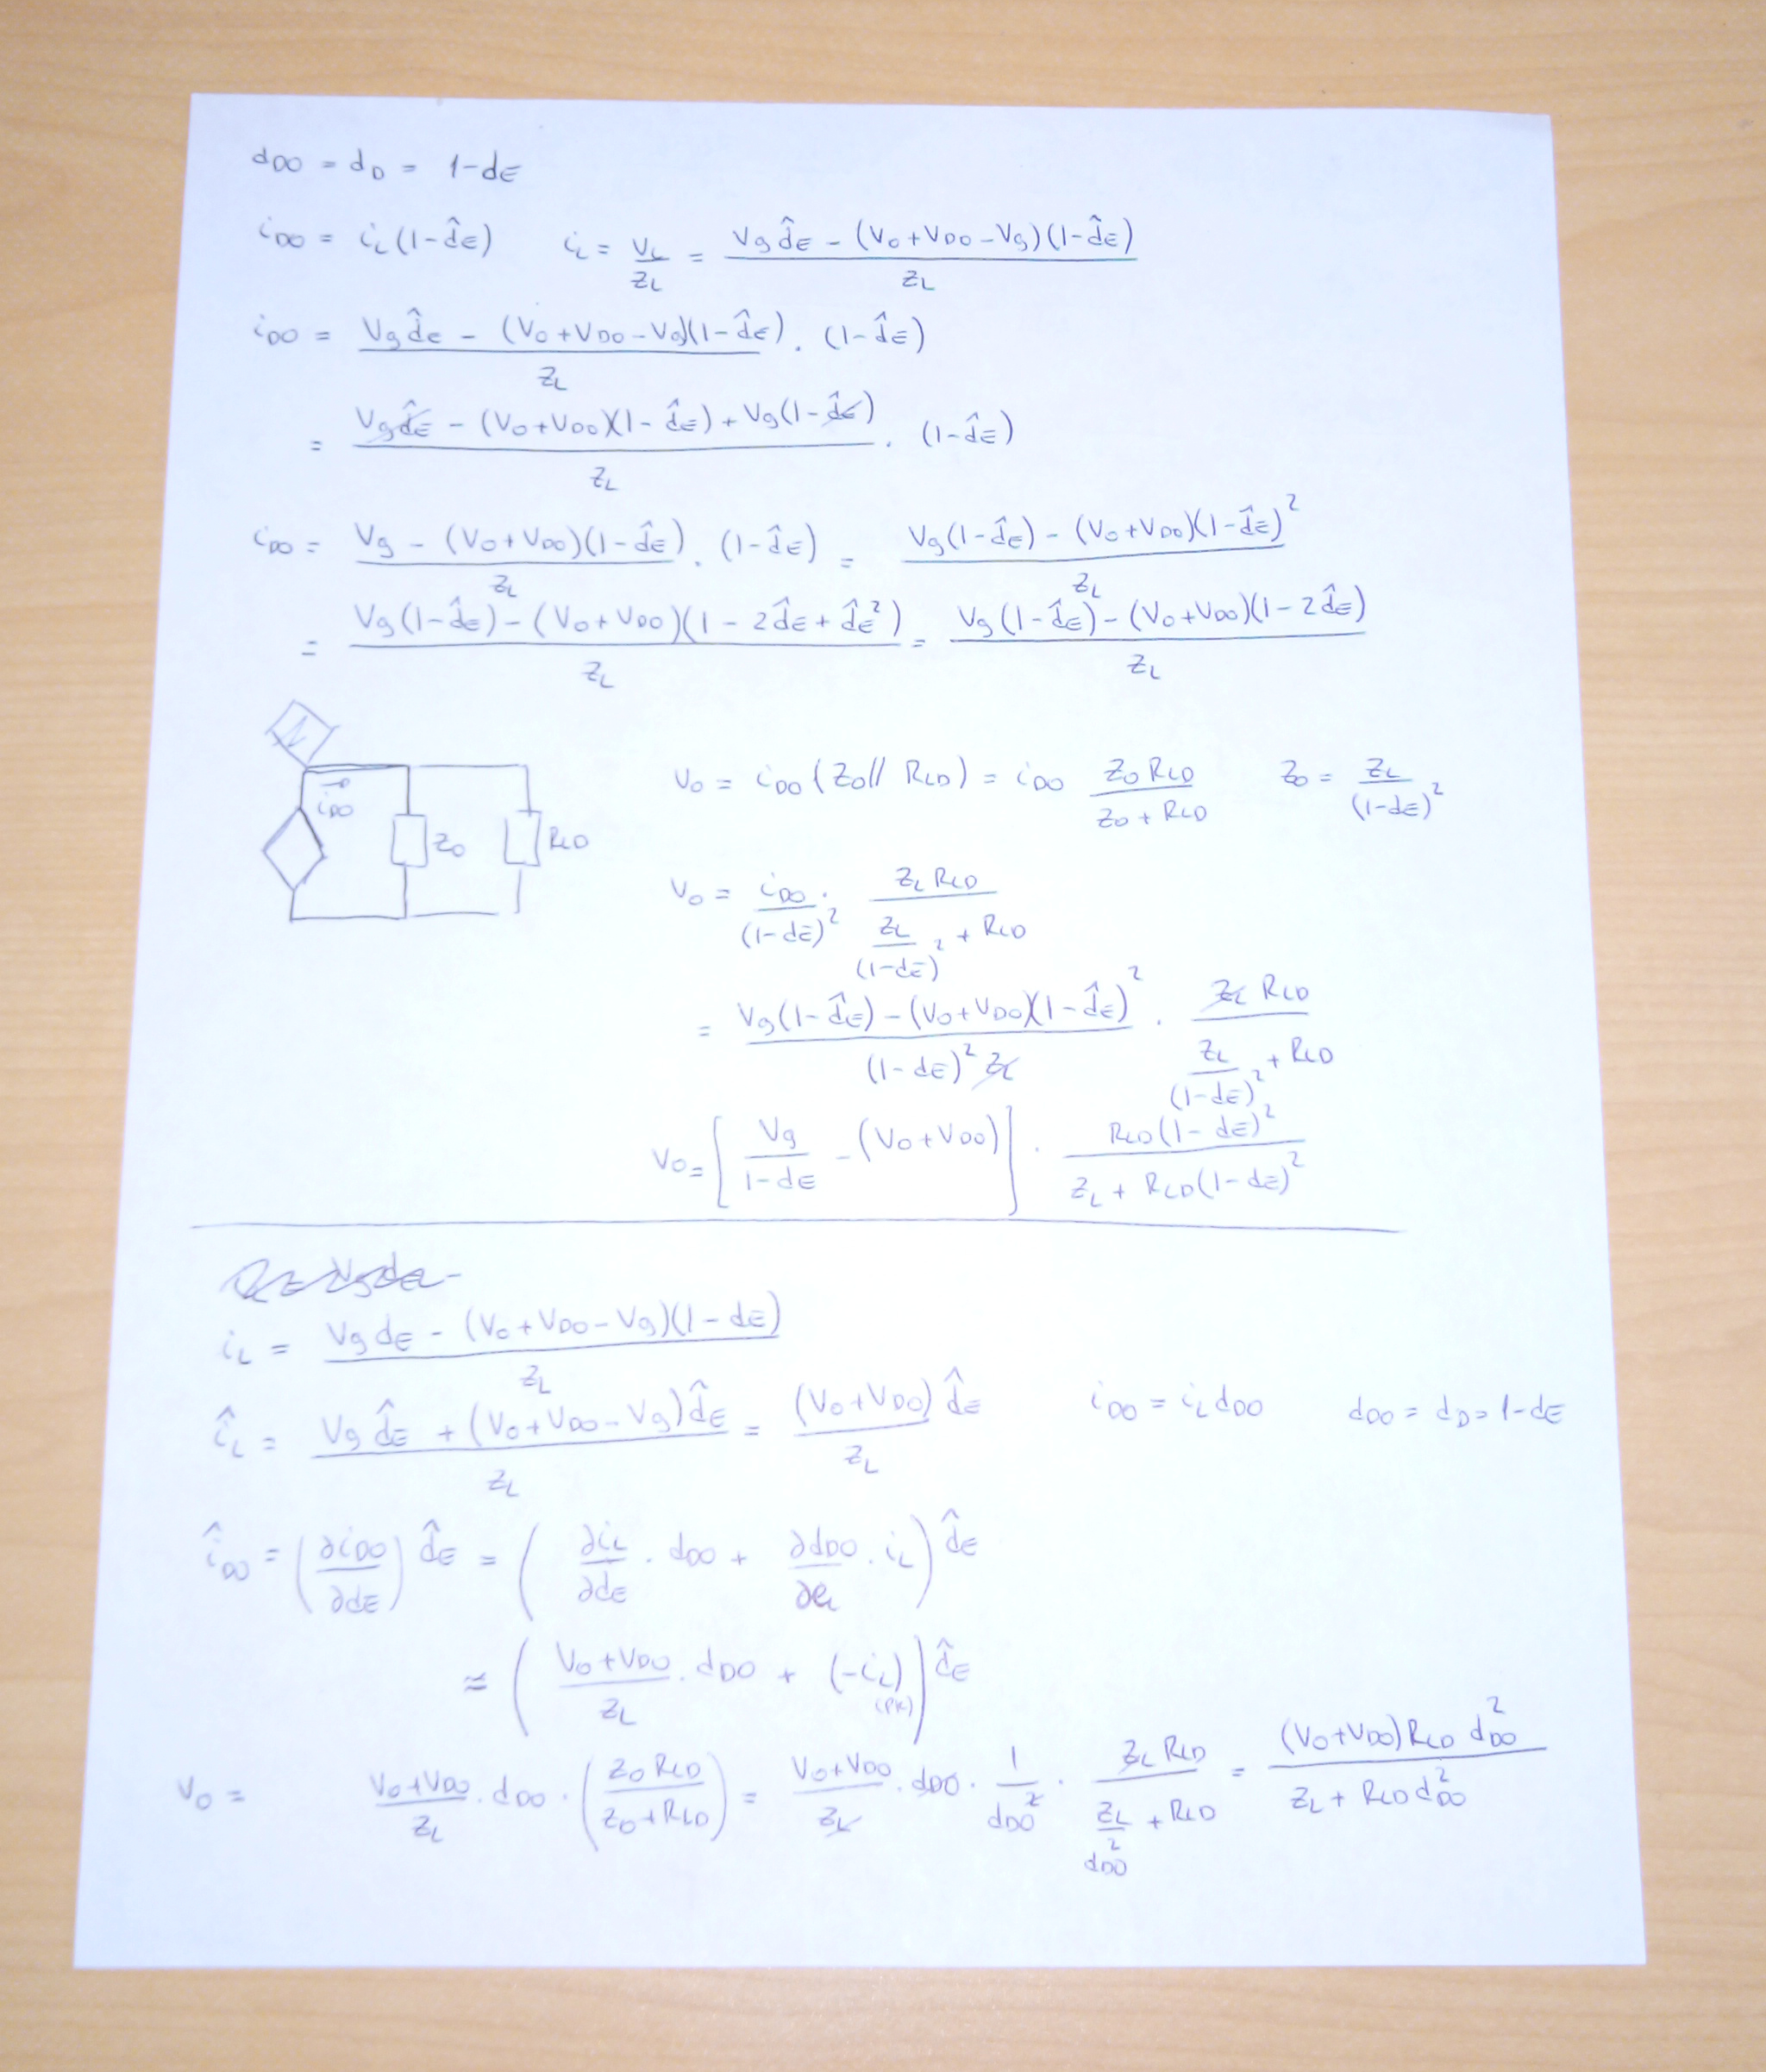 d_DO = d_D = 1-d_E
i_DO = i_L(1-d̂_E)   i_L = v_L/Z_L = (V_g d̂_E - (V_o+V_DO-V_g)(1-d̂_E))/Z_L
i_DO = (V_g d̂_E - (V_o+V_DO-V_g)(1-d̂_E))/Z_L · (1-d̂_E)
= (V_g d̂_E - (V_o+V_DO)(1-d̂_E) + V_g(1-d̂_E))/Z_L · (1-d̂_E)
i_DO = (V_g - (V_o+V_DO)(1-d̂_E))/Z_L · (1-d̂_E) = (V_g(1-d̂_E) - (V_o+V_DO)(1-d̂_E)²)/Z_L
= (V_g(1-d̂_E) - (V_o+V_DO)(1-2d̂_E+d̂_E²))/Z_L = (V_g(1-d̂_E) - (V_o+V_DO)(1-2d̂_E))/Z_L
i_DO   Z_o   R_LD
V_o = i_DO(Z_o//R_LD) = i_DO (Z_o R_LD)/(Z_o+R_LD)   Z_o = Z_L/(1-d_E)²
V_o = i_DO/(1-d_E)² · (Z_L R_LD)/(Z_L/(1-d_E)² + R_LD)
= (V_g(1-d̂_E) - (V_o+V_DO)(1-d̂_E)²)/((1-d_E)² Z_L) · (Z_L R_LD)/(Z_L/(1-d_E)² + R_LD)
V_o = [V_g/(1-d_E) - (V_o+V_DO)] · (R_LD(1-d_E)²)/(Z_L + R_LD(1-d_E)²)
i_L = (V_g d_E - (V_o+V_DO-V_g)(1-d_E))/Z_L
î_L = (V_g d̂_E + (V_o+V_DO-V_g)d̂_E)/Z_L = ((V_o+V_DO)d̂_E)/Z_L   i_DO = i_L d_DO   d_DO = d_D = 1-d_E
î_DO = (∂i_DO/∂d_E) d̂_E = (∂i_L/∂d_E · d_DO + ∂d_DO/∂d_E · i_L) d̂_E
≈ ((V_o+V_DO)/Z_L · d_DO + (-i_L(pk))) d̂_E
V_o = (V_o+V_DO)/Z_L · d_DO · ((Z_o R_LD)/(Z_o+R_LD)) = (V_o+V_DO)/Z_L · d_DO · 1/d_DO² · (Z_L R_LD)/(Z_L/d_DO² + R_LD) = ((V_o+V_DO)R_LD d_DO²)/(Z_L + R_LD d_DO²)